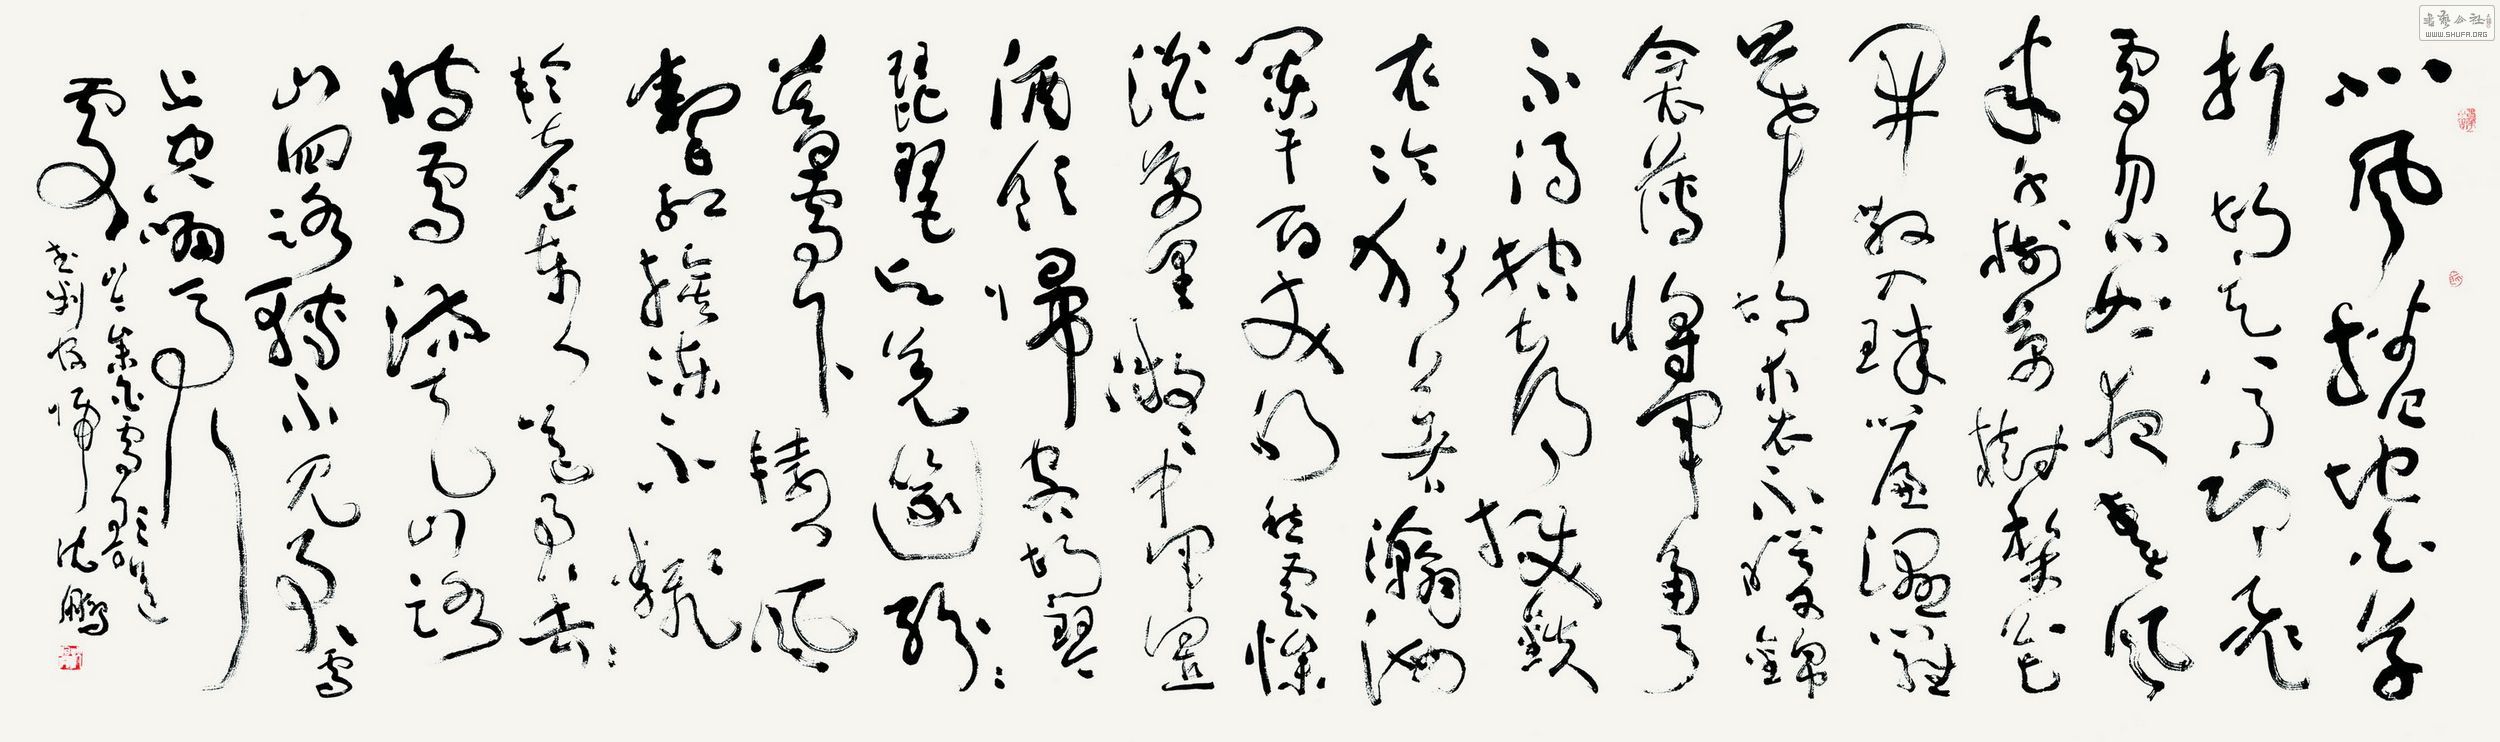 北風捲地白草
折胡天八月即飛
雪忽如夜春風
來千樹萬樹梨花
開散入珠簾濕羅
幕狐裘不暖錦
衾薄將軍角弓
不得控都護鐵
衣冷猶著瀚海
闌干百丈冰愁雲慘
澹萬里凝中軍置
酒飲歸客胡琴
琵琶與羌笛紛〻
暮雪下轅門風
掣紅旗凍不翻
輪臺東門送君去〻
時雪滿天山路
山迴路轉不見君雪
上空留馬行
處
岑參白雪歌送
武判官歸京 沈鵬
WWW.SHUFA.ORG